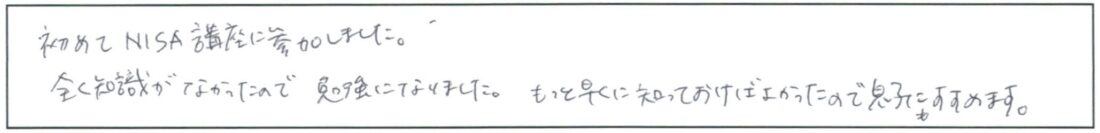 初めてNISA講座に参加しました。
全く知識がなかったので勉強になりました。もっと早くに知っておけばよかったので息子にもすすめます。